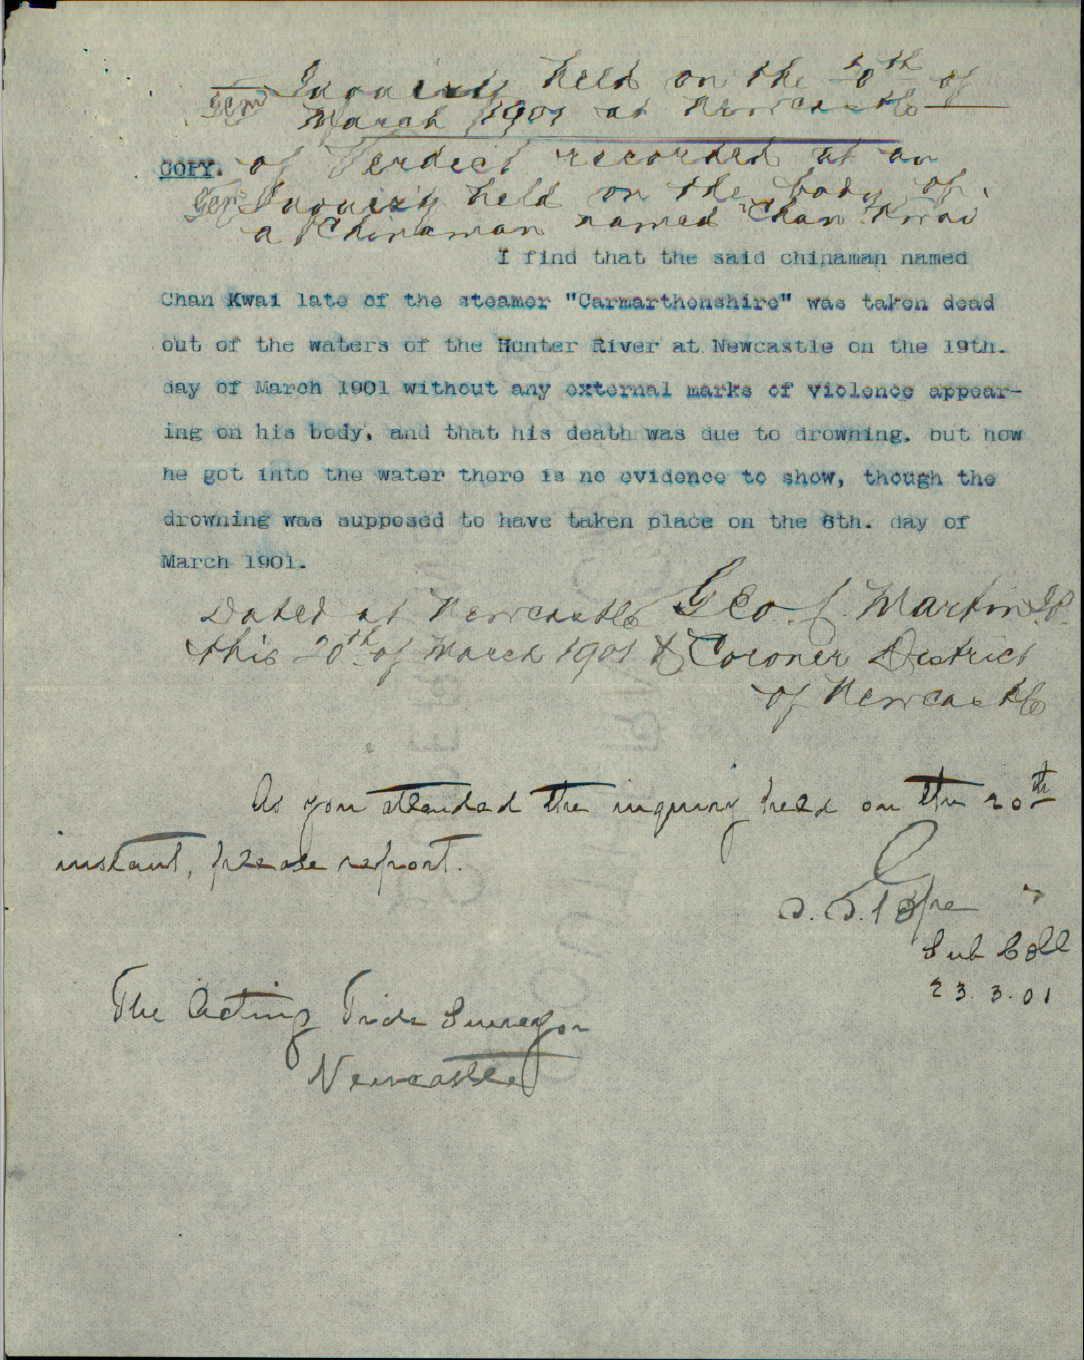 Inquiry held on the 20th of
March 1901 at Newcastle
COPY. of Verdict recorded at an
Inquiry held on the body of
a Chinaman named Chan Kwai
I find that the said chinaman named
Chan Kwai late of the steamer "Carmarthenshire" was taken dead
out of the waters of the Hunter River at Newcastle on the 19th.
day of March 1901 without any external marks of violence appear-
ing on his body, and that his death was due to drowning. but how
he got into the water there is no evidence to show, though the
drowning was supposed to have taken place on the 6th. day of
March 1901.
Dated at Newcastle Geo. C. Martin J.P.
this 20th of March 1901 & Coroner District
of Newcastle
As you attended the inquiry held on the 20th
instant, please report.
Sub Coll
23.3.01
The Acting Tide Surveyor
Newcastle